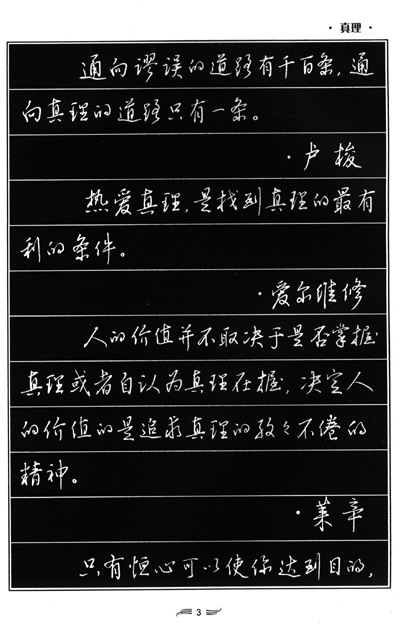 · 真理 ·
通向谬误的道路有千百条，通
向真理的道路只有一条。
· 卢梭
热爱真理，是找到真理的最有
利的条件。
· 爱尔维修
人的价值并不取决于是否掌握
真理或者自认为真理在握，决定人
的价值的是追求真理的孜々不倦的
精神。
· 莱辛
只有恒心可以使你达到目的，
3